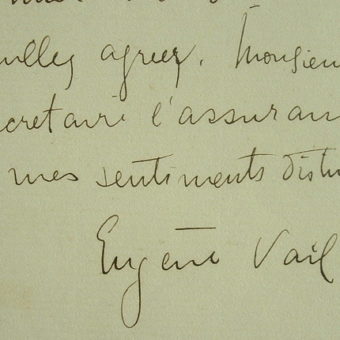 uillez agréez. Monsieu
crétaire l'assuran
mes sentiments distin
Eugène Vail